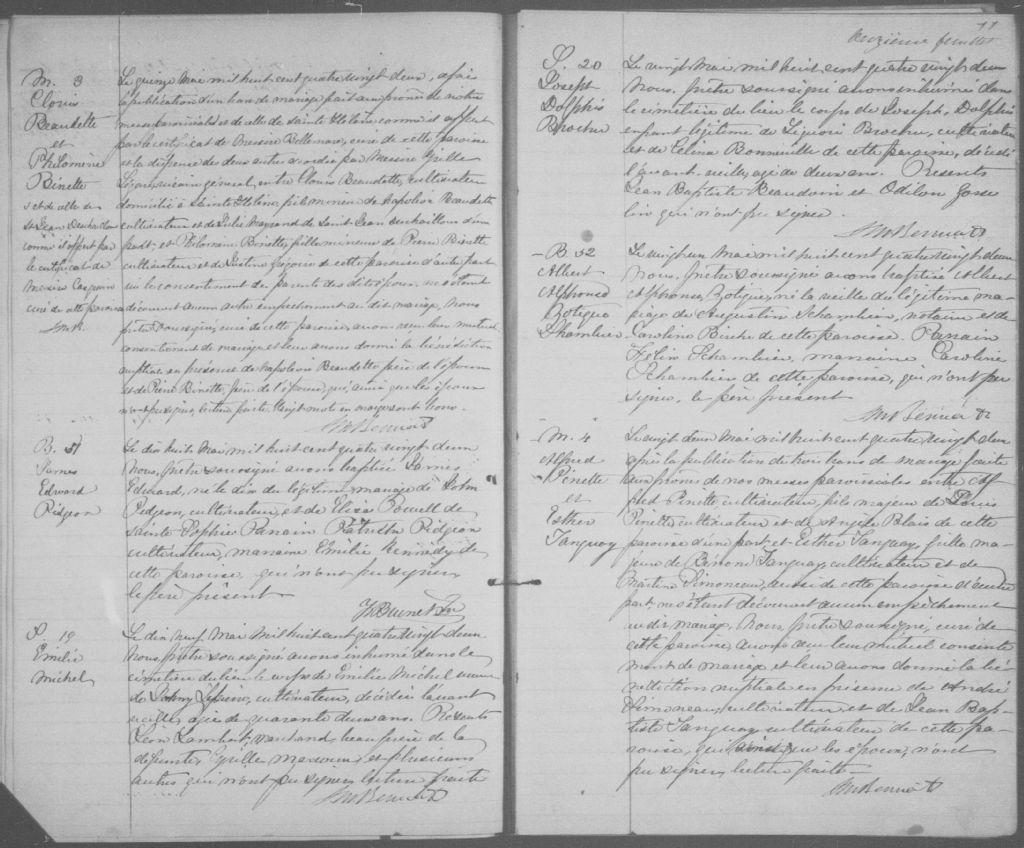 M. 3
Clovis
Beaudette
et
Philomène
Binette
Le quinze Mai mil huit cent quatre vingt deux, après
la publication d'un ban de mariage fait au prône de notre
messe paroissiale et de celle de Sainte Hélène comme il appert
par le certificat de Messire Bellemare, curé de cette paroisse
et la dispense des deux autres accordée par Messire Cyrille
Légaré, vicaire général, entre Clovis Beaudette, cultivateur
domicilié à Sainte Hélène, fils mineur de Napoléon Beaudette
cultivateur et de Julie Mayrand de Saint Jean Deschaillons d'une
part, et Philomène Binette, fille mineure de Pierre Binette
cultivateur et de Justine Grégoire de cette paroisse d'autre part
vu le consentement des parents des dits époux, ne s'étant
découvert aucun autre empêchement au dit mariage, Nous
prêtre soussigné, curé de cette paroisse, avons reçu leur mutuel
consentement de mariage et leur avons donné la bénédiction
nuptiale en présence de Napoléon Beaudette père de l'époux
et de Pierre Binette, père de l'épouse, qui, ainsi que les époux
n'ont pu signer, lecture faite. Vingt mots en marge sont bons.
B. 51
James
Edward
Pidgeon
Le dix huit Mai mil huit cent quatre vingt deux
Nous, prêtre soussigné avons baptisé James
Edward, né le dix du légitime mariage de John
Pidgeon, cultivateur, et de Eliza Powell de
Sainte Sophie Parrain Patrick Pidgeon
cultivateur, marraine Emilie Kennedy de
cette paroisse, qui n'ont pu signer
le père présent
S. 19
Emilie
Michel
Le dix neuf Mai Mil huit cent quatre vingt deux
Nous, prêtre soussigné avons inhumé dans le
cimetière du lieu le corps de Emilie Michel veuve
cultivateur, décédée l'avant
veille, âgée de quarante deux ans. Présents
Léon Lambert, marchand, beau frère de la
défunte, Cyrille et plusieurs
autres qui n'ont pu signer, lecture faite
11
Onzième feuillet
S. 20
Joseph
Dolphis
Brochu
Le vingt Mai mil huit cent quatre vingt deux
Nous, prêtre soussigné avons inhumé dans
le cimetière du lieu le corps de Joseph, Dolphis
enfant légitime de Liguori Brochu, cultivateur
et de Célina Bonneville de cette paroisse, décédé
l'avant veille, agé de deux ans. Présents
Jean Baptiste Beaudoin et Odilon Gosse
lin qui n'ont pu signer.
B. 52
Albert
Alphonse
Zotique
Chambers
Le vingt un Mai mil huit cent quatre vingt deux
Nous, prêtre soussigné avons baptisé Albert
Alphonse, Zotique, né la veille du légitime ma-
riage de Augustin Chambers, notaire et de
Caroline de cette paroisse. Parrain
Félix Chambers, marraine, Caroline
Chambers de cette paroisse, qui n'ont pu
signer, le père présent
M. 4
Alfred
Pinette
et
Esther
Tanguay
Le vingt deux Mai mil huit cent quatre vingt deux
après la publication de trois bans de mariage faite
aux prônes de nos messes paroissiales entre Al
fred Pinette, cultivateur, fils majeur de Louis
Pinette, cultivateur et de Angèle Blais de cette
paroisse d'une part et Esther Tanguay, fille ma-
jeure de Bénoni Tanguay, cultivateur et de
Martine Simoneau, aussi de cette paroisse d'autre
part, ne s'étant découvert aucun empêchement
au dit mariage, Nous prêtre soussigné, curé de
cette paroisse, avons reçu leur mutuel consente
ment de mariage et leur avons donné la bé-
nédiction nuptiale en présence de André
Simoneau, cultivateur et de Jean Bap-
tiste Tanguay, cultivateur de cette pa-
roisse, qui ainsi que les époux, n'ont
pu signer, lecture faite